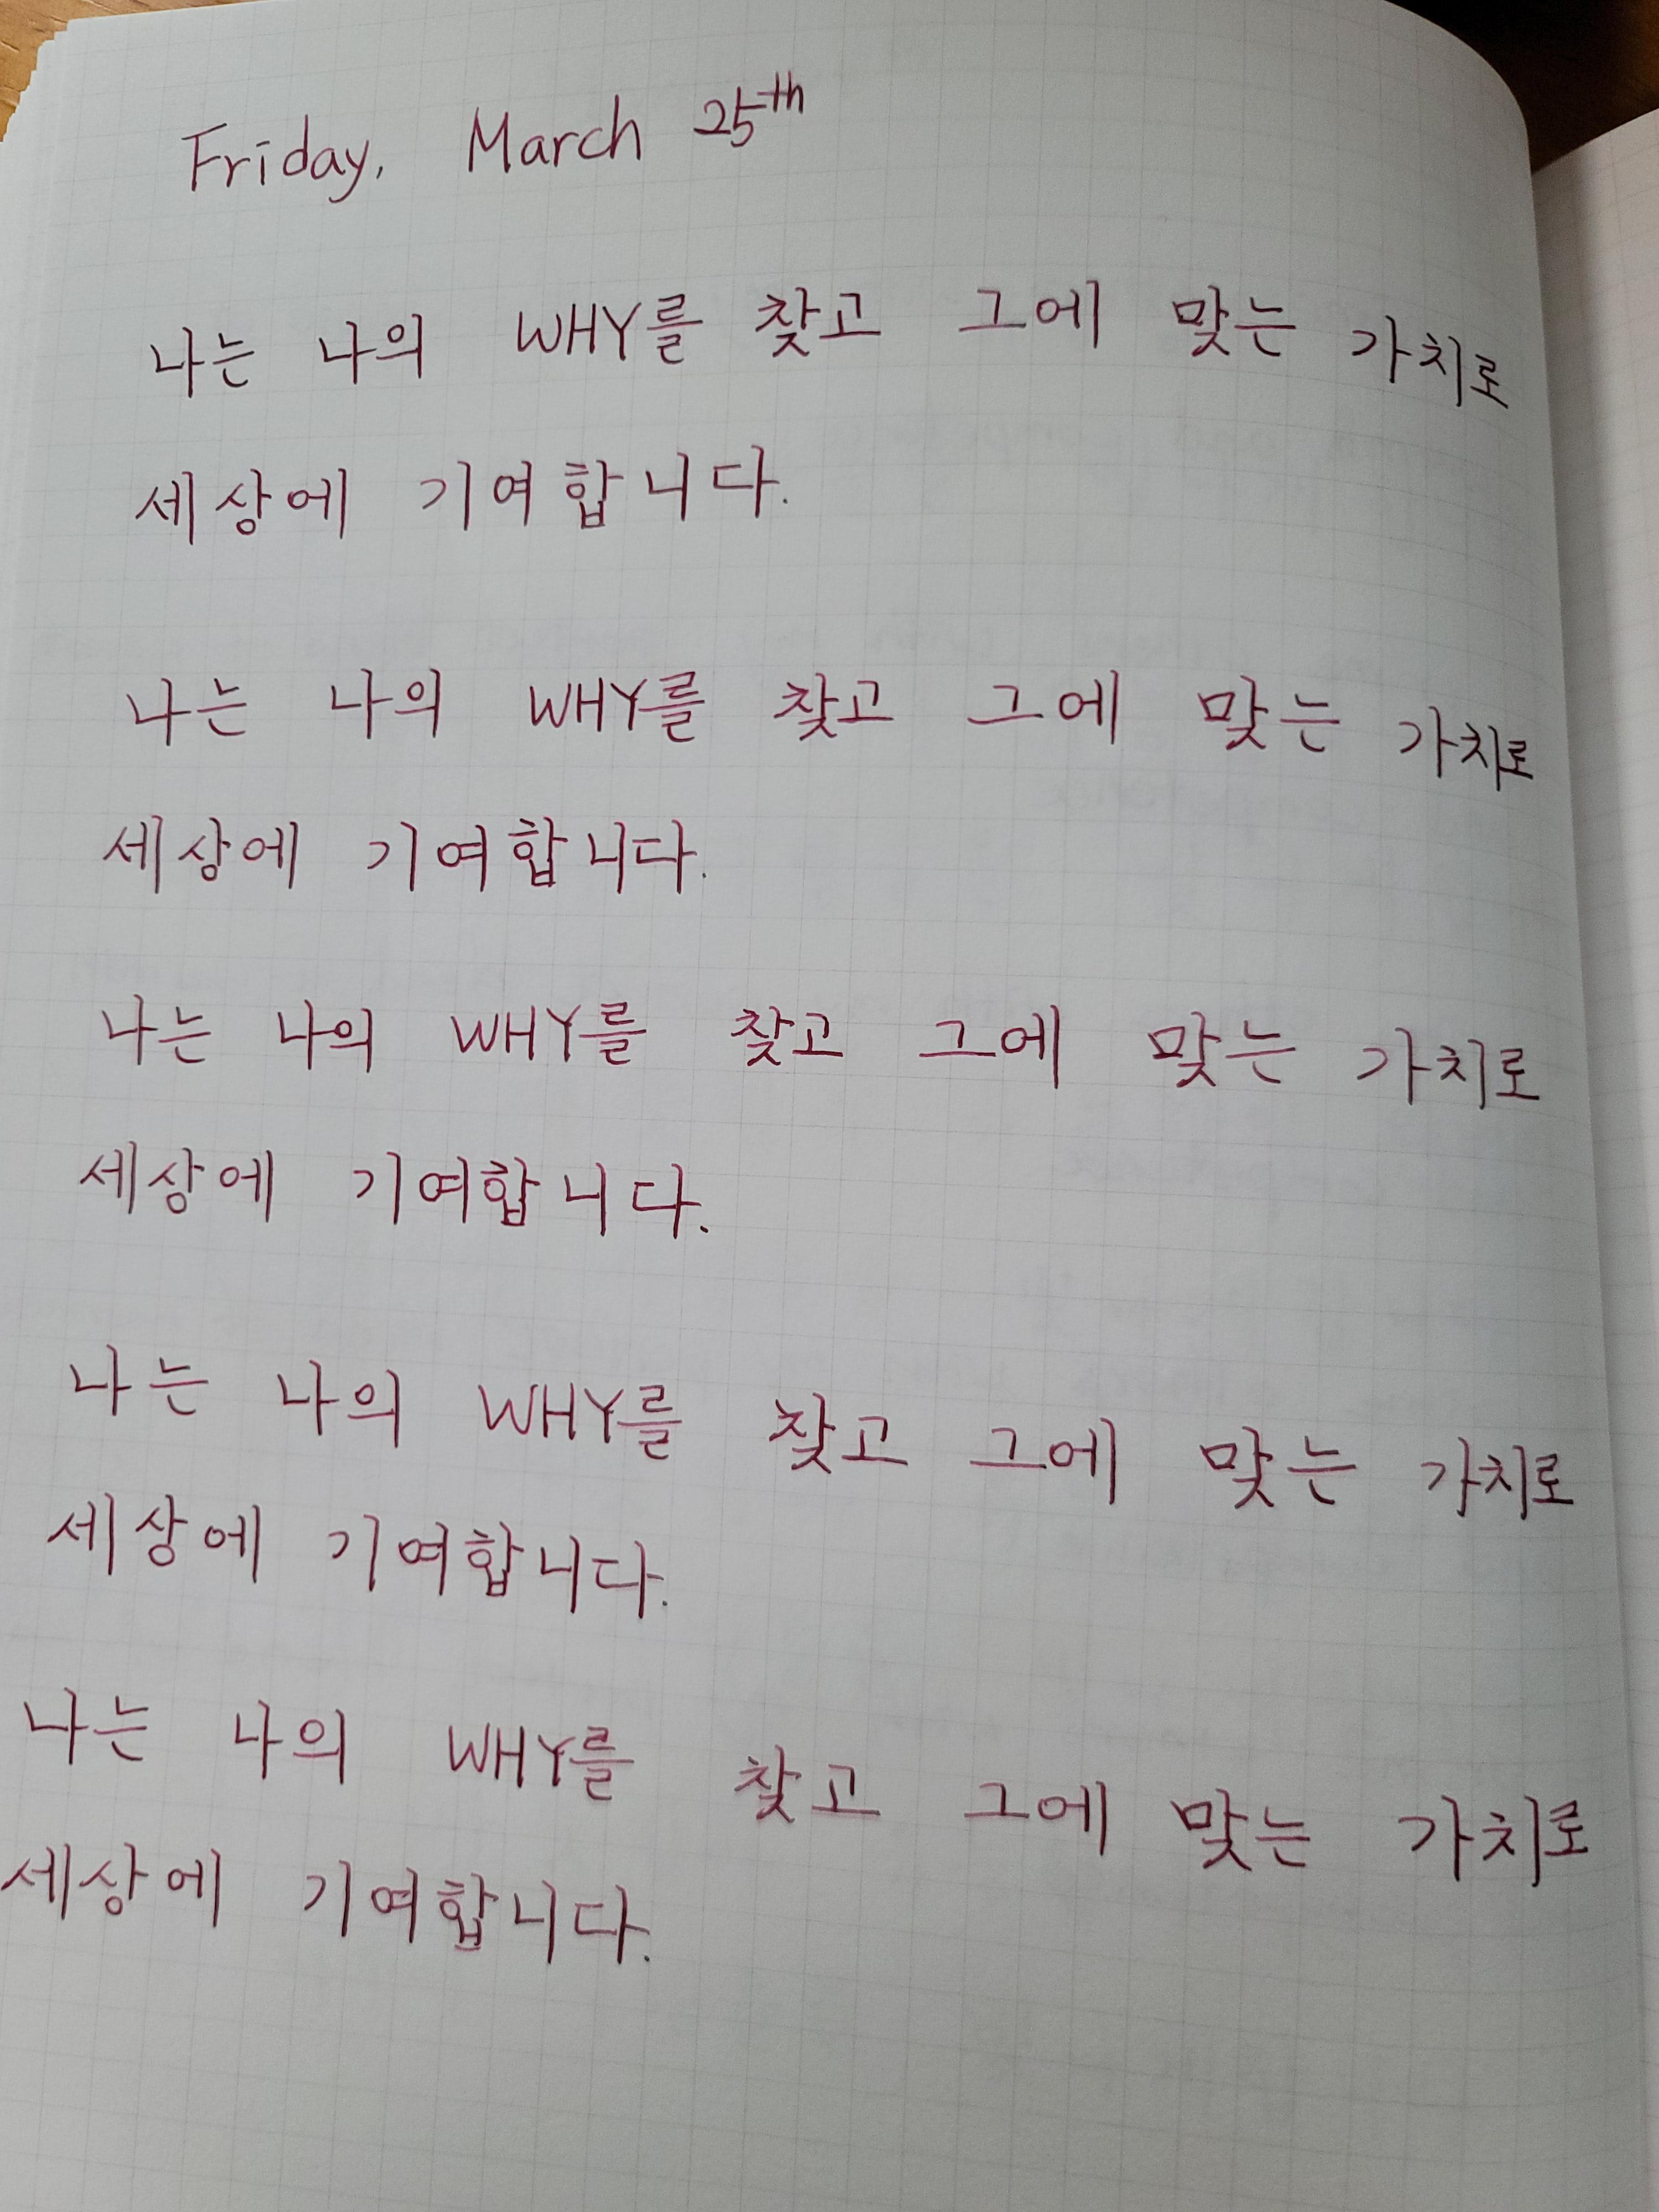 Friday, March 25th
나는 나의 WHY를 찾고 그에 맞는 가치로
세상에 기여합니다.
나는 나의 WHY를 찾고 그에 맞는 가치로
세상에 기여합니다.
나는 나의 WHY를 찾고 그에 맞는 가치로
세상에 기여합니다.
나는 나의 WHY를 찾고 그에 맞는 가치로
세상에 기여합니다.
나는 나의 WHY를 찾고 그에 맞는 가치로
세상에 기여합니다.